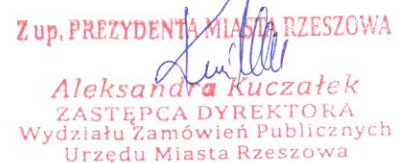 Z up. PREZYDENTA MIASTA RZESZOWA
Aleksandra Kuczałek
ZASTĘPCA DYREKTORA
Wydziału Zamówień Publicznych
Urzędu Miasta Rzeszowa